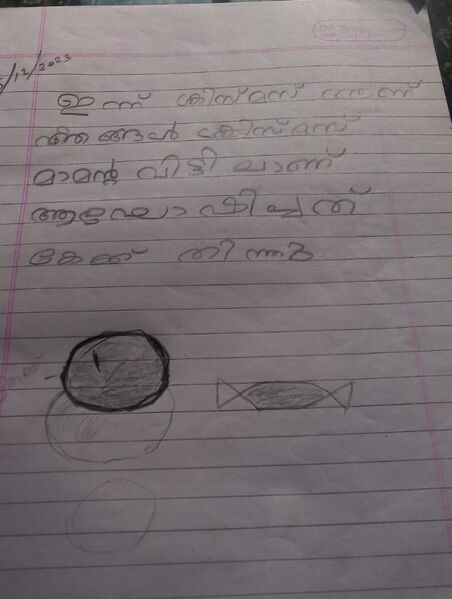 /12/2023
ഇന്ന് ക്രിസ്മസ് ആണ്
ഞങ്ങൾ ക്രിസ്മസ്
മാമന്റ വിട്ടിലാണ്
ആഘോഷിച്ചത്
കേക്ക് തിന്നു